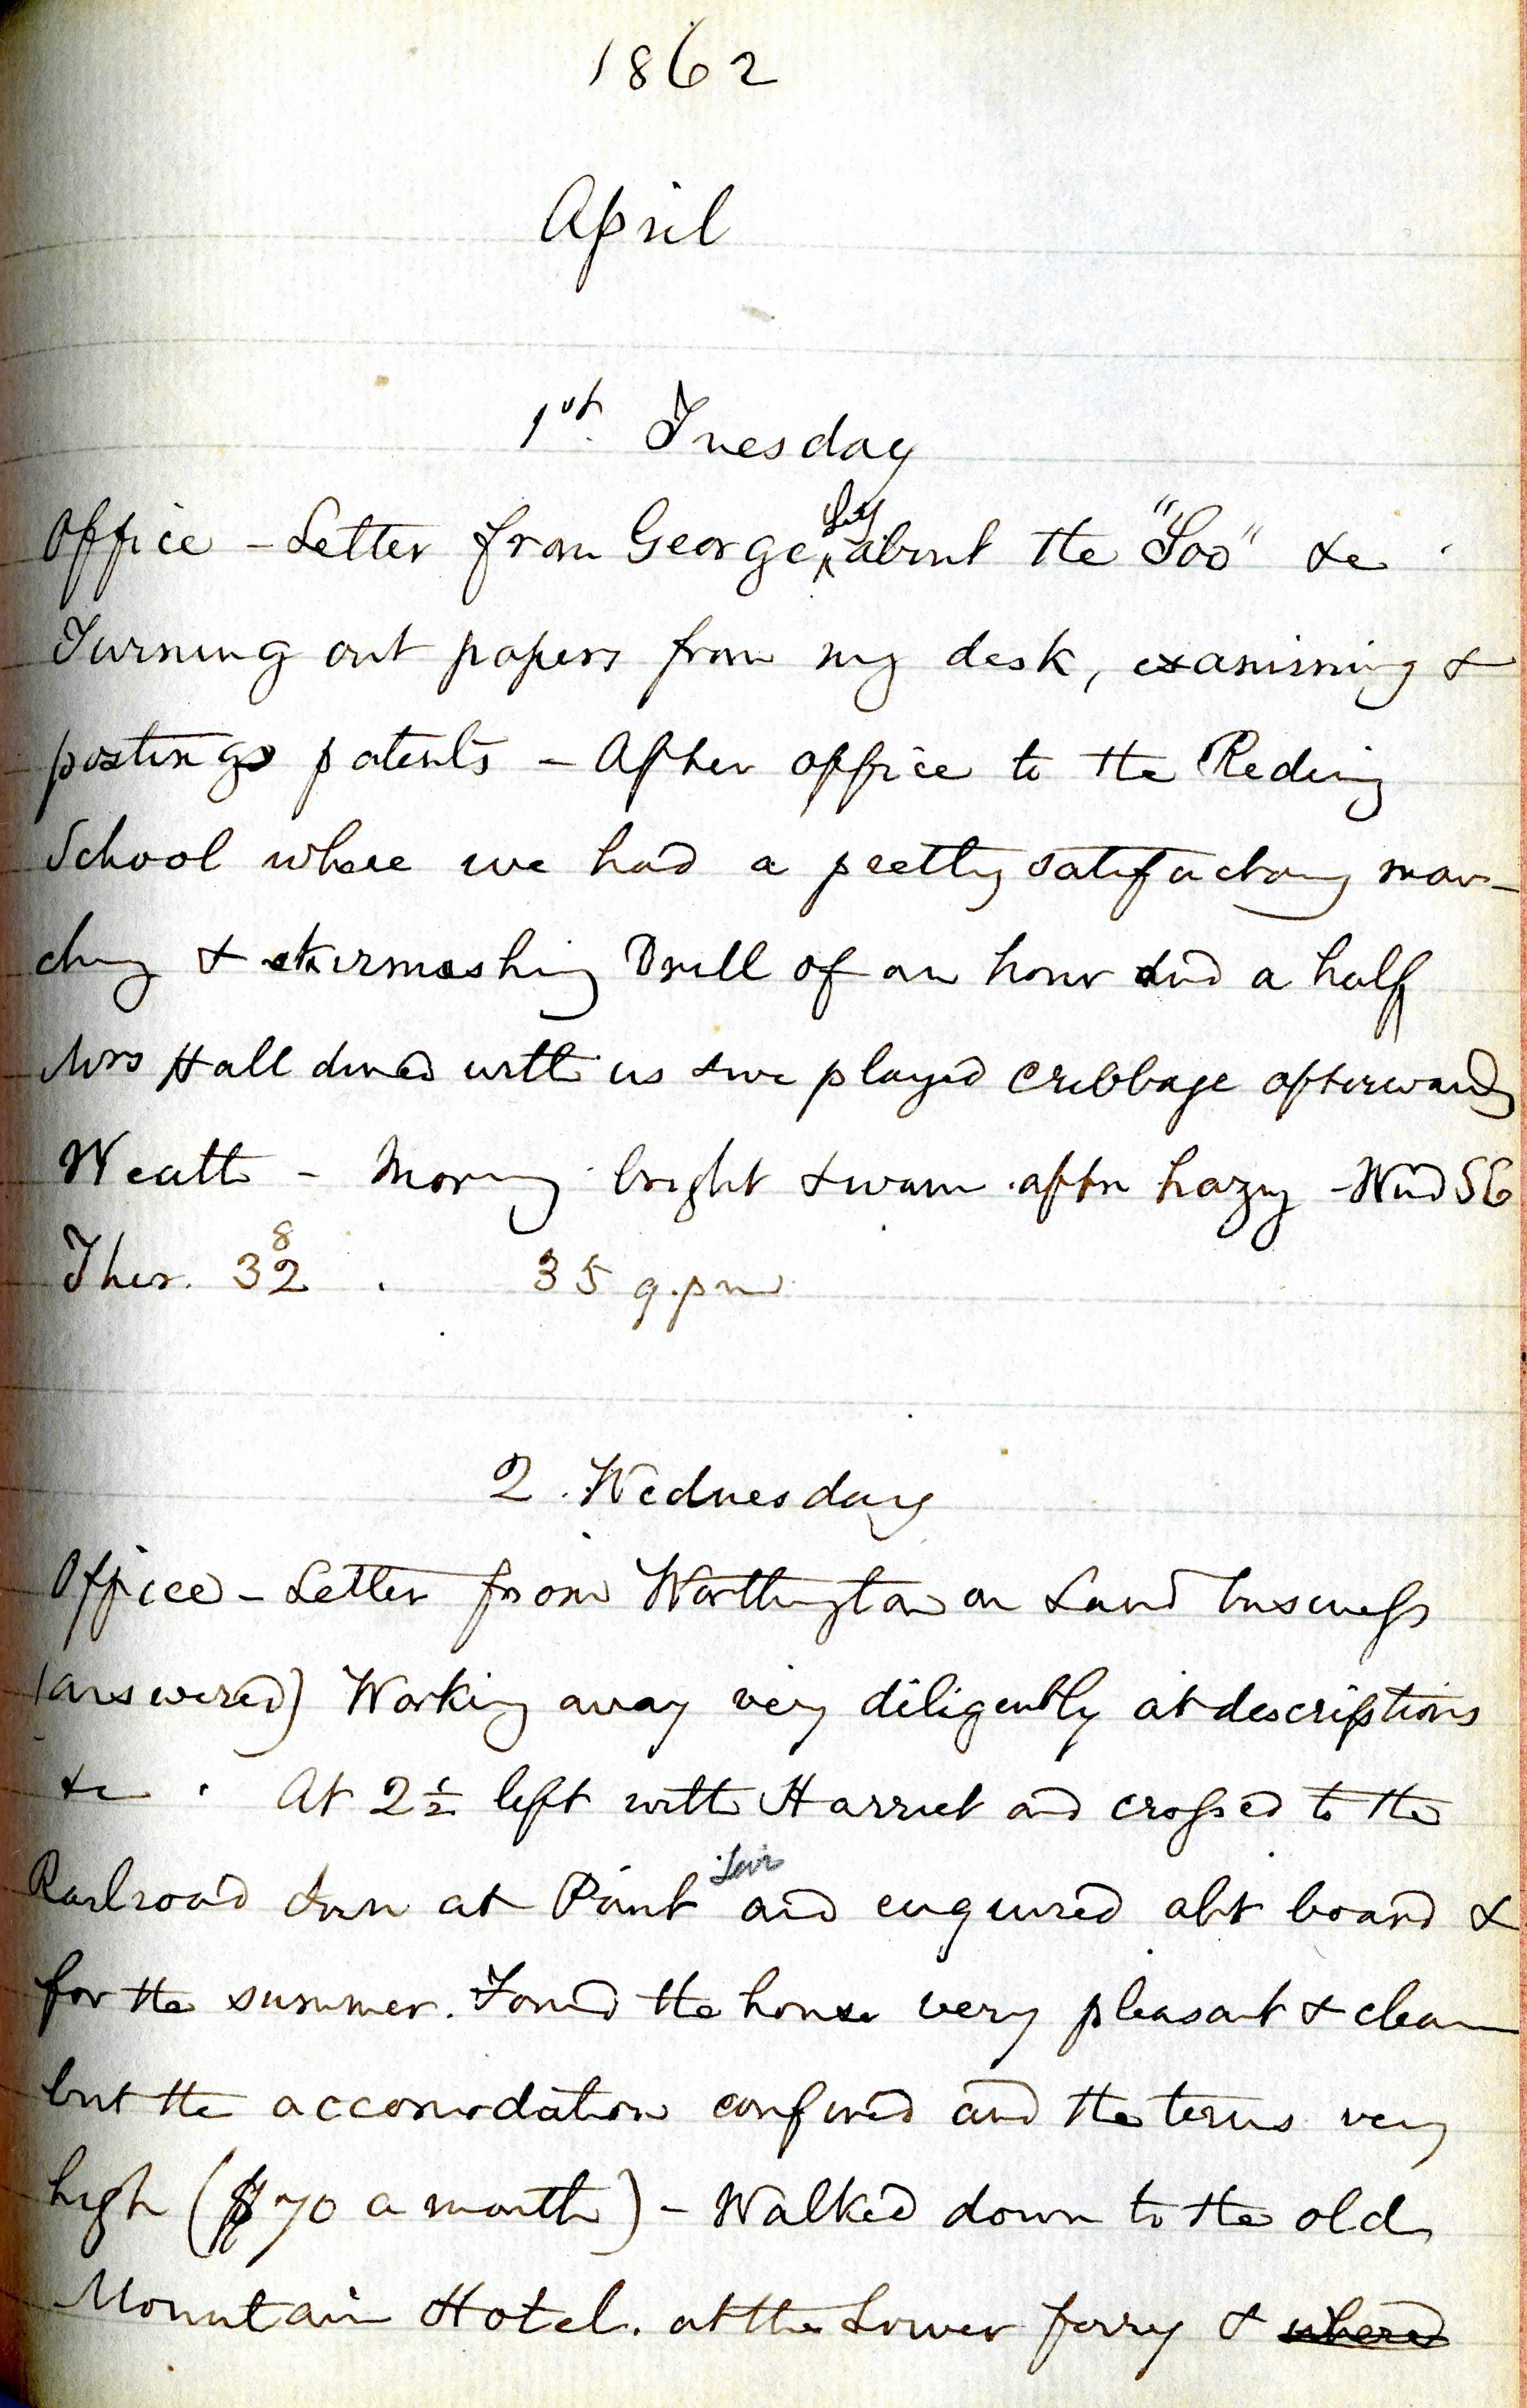 1862
April
1st. Tuesday
Office - Letter from George about the "Soo" &c
Turning out papers from my desk, examining &
postings patents - After office to the Reding
School where we had a pretty satisfactory mar-
ching & skirmishing Drill of an hour and a half
Mrs Hall dined with us & we played cribbage afterwards
Weath - Morning bright & warm aftn hazy - Wind
Ther. 38 2 . 35 9.pm
2. Wednesday
Office - Letter from Worthington on Land business
(answered) Working away very diligently at descriptions
&c . At 2½ left with Harriet and crossed to the
Railroad Inn at Point Levi and enquired abt board &
for the summer. Found the house very pleasant & clean
but the accomodation confined and the terms very
high ($70 a month) - Walked down to the old
Mountain Hotel. at the Lower ferry & where